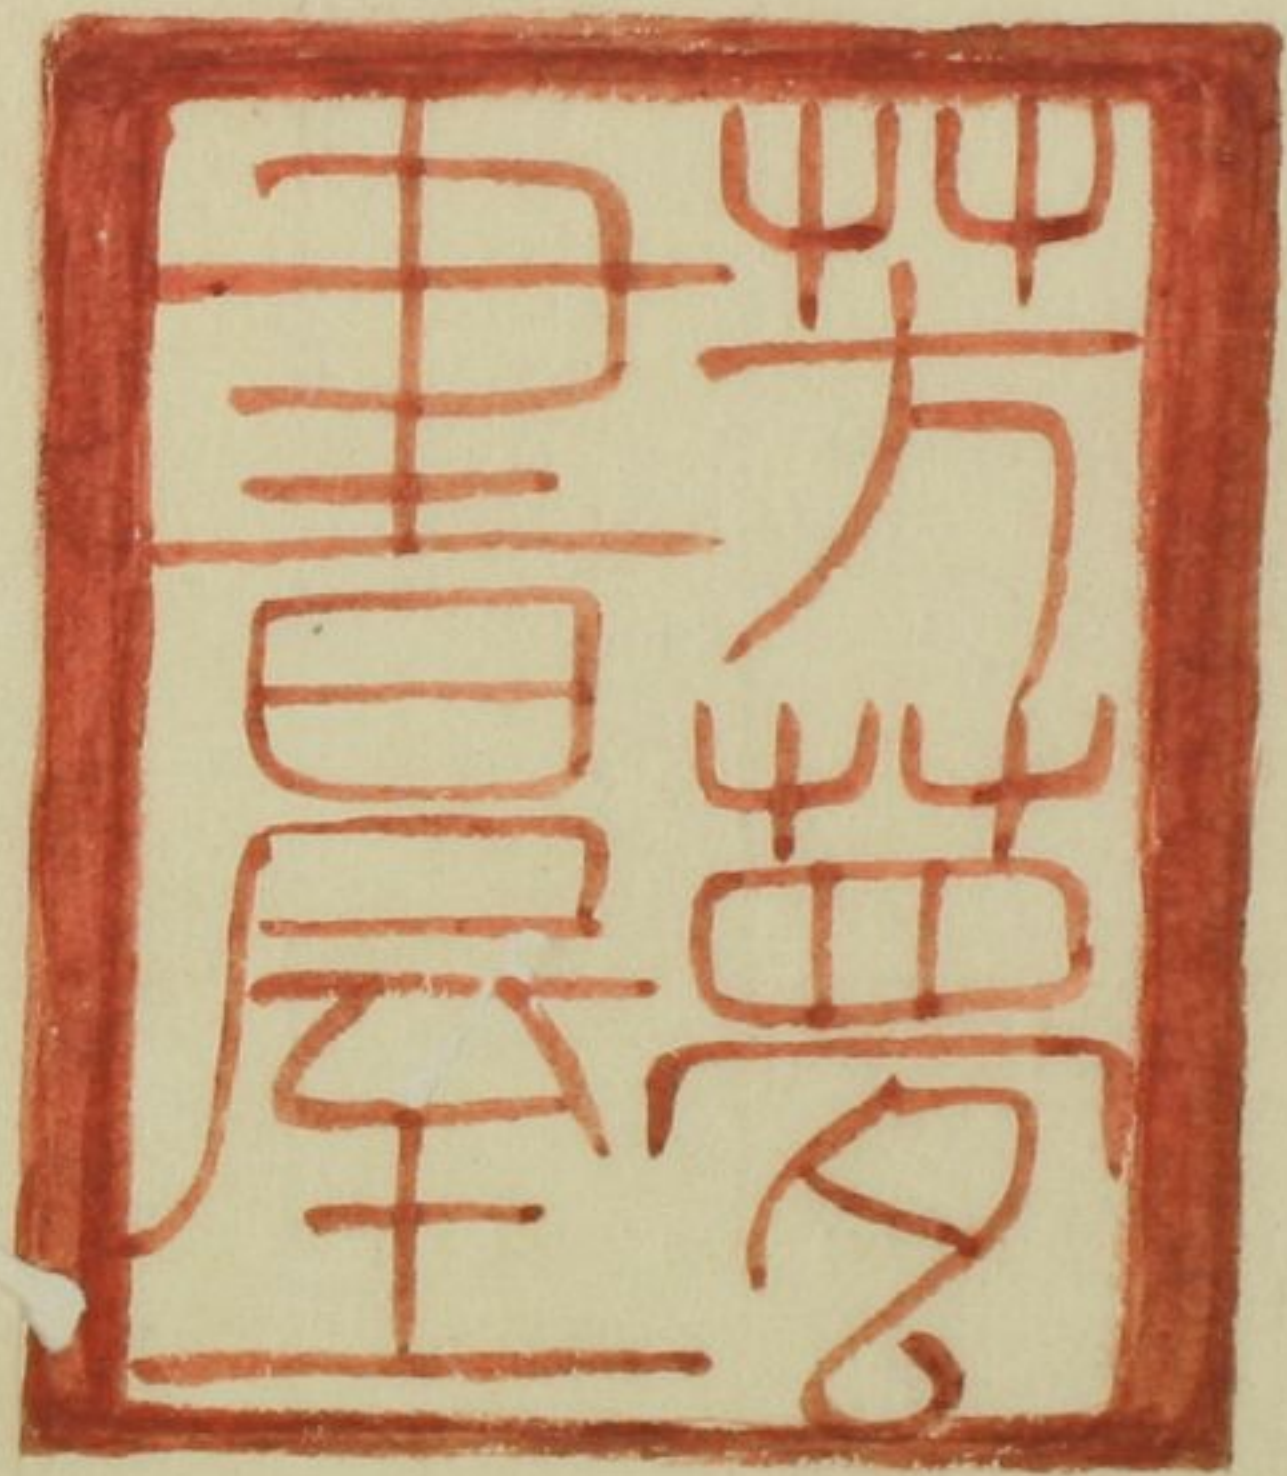 芳夢
書屋